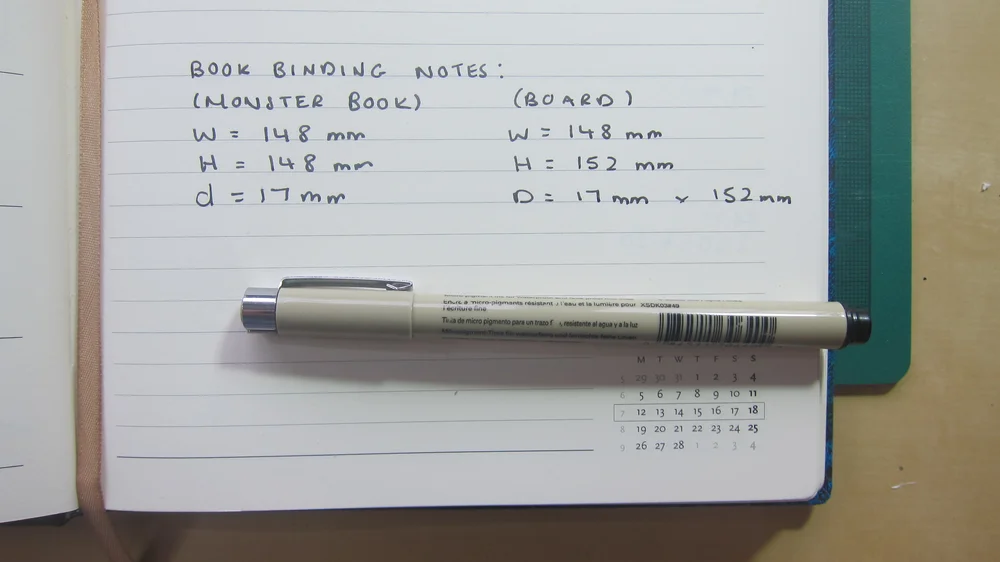 BOOK BINDING NOTES:
(MONSTER BOOK) (BOARD)
W = 148 mm W = 148 mm
H = 148 mm H = 152 mm
d = 17 mm D = 17 mm x 152 mm
résistent à l'eau et la lumière pour XSDK03849
l'écriture fine.
Tinta de micro pigmento para un trazo resistente al agua y a la luz
M T W T F S S
5 29 30 31 1 2 3 4
6 5 6 7 8 9 10 11
7 12 13 14 15 16 17 18
8 19 20 21 22 23 24 25
9 26 27 28 1 2 3 4